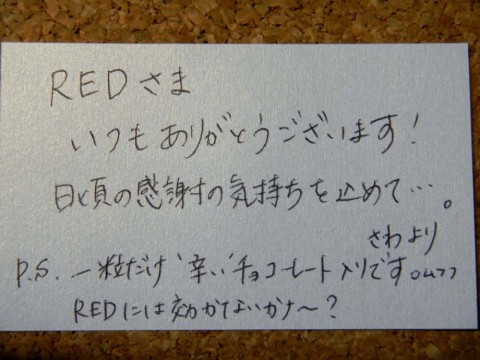 REDさま
いつもありがとうございます!
日頃の感謝の気持ちを止めて…。
さわより
P.S. 一粒だけ“辛い”チョコレート入りです。ムフフ
REDには効かないかな〜?